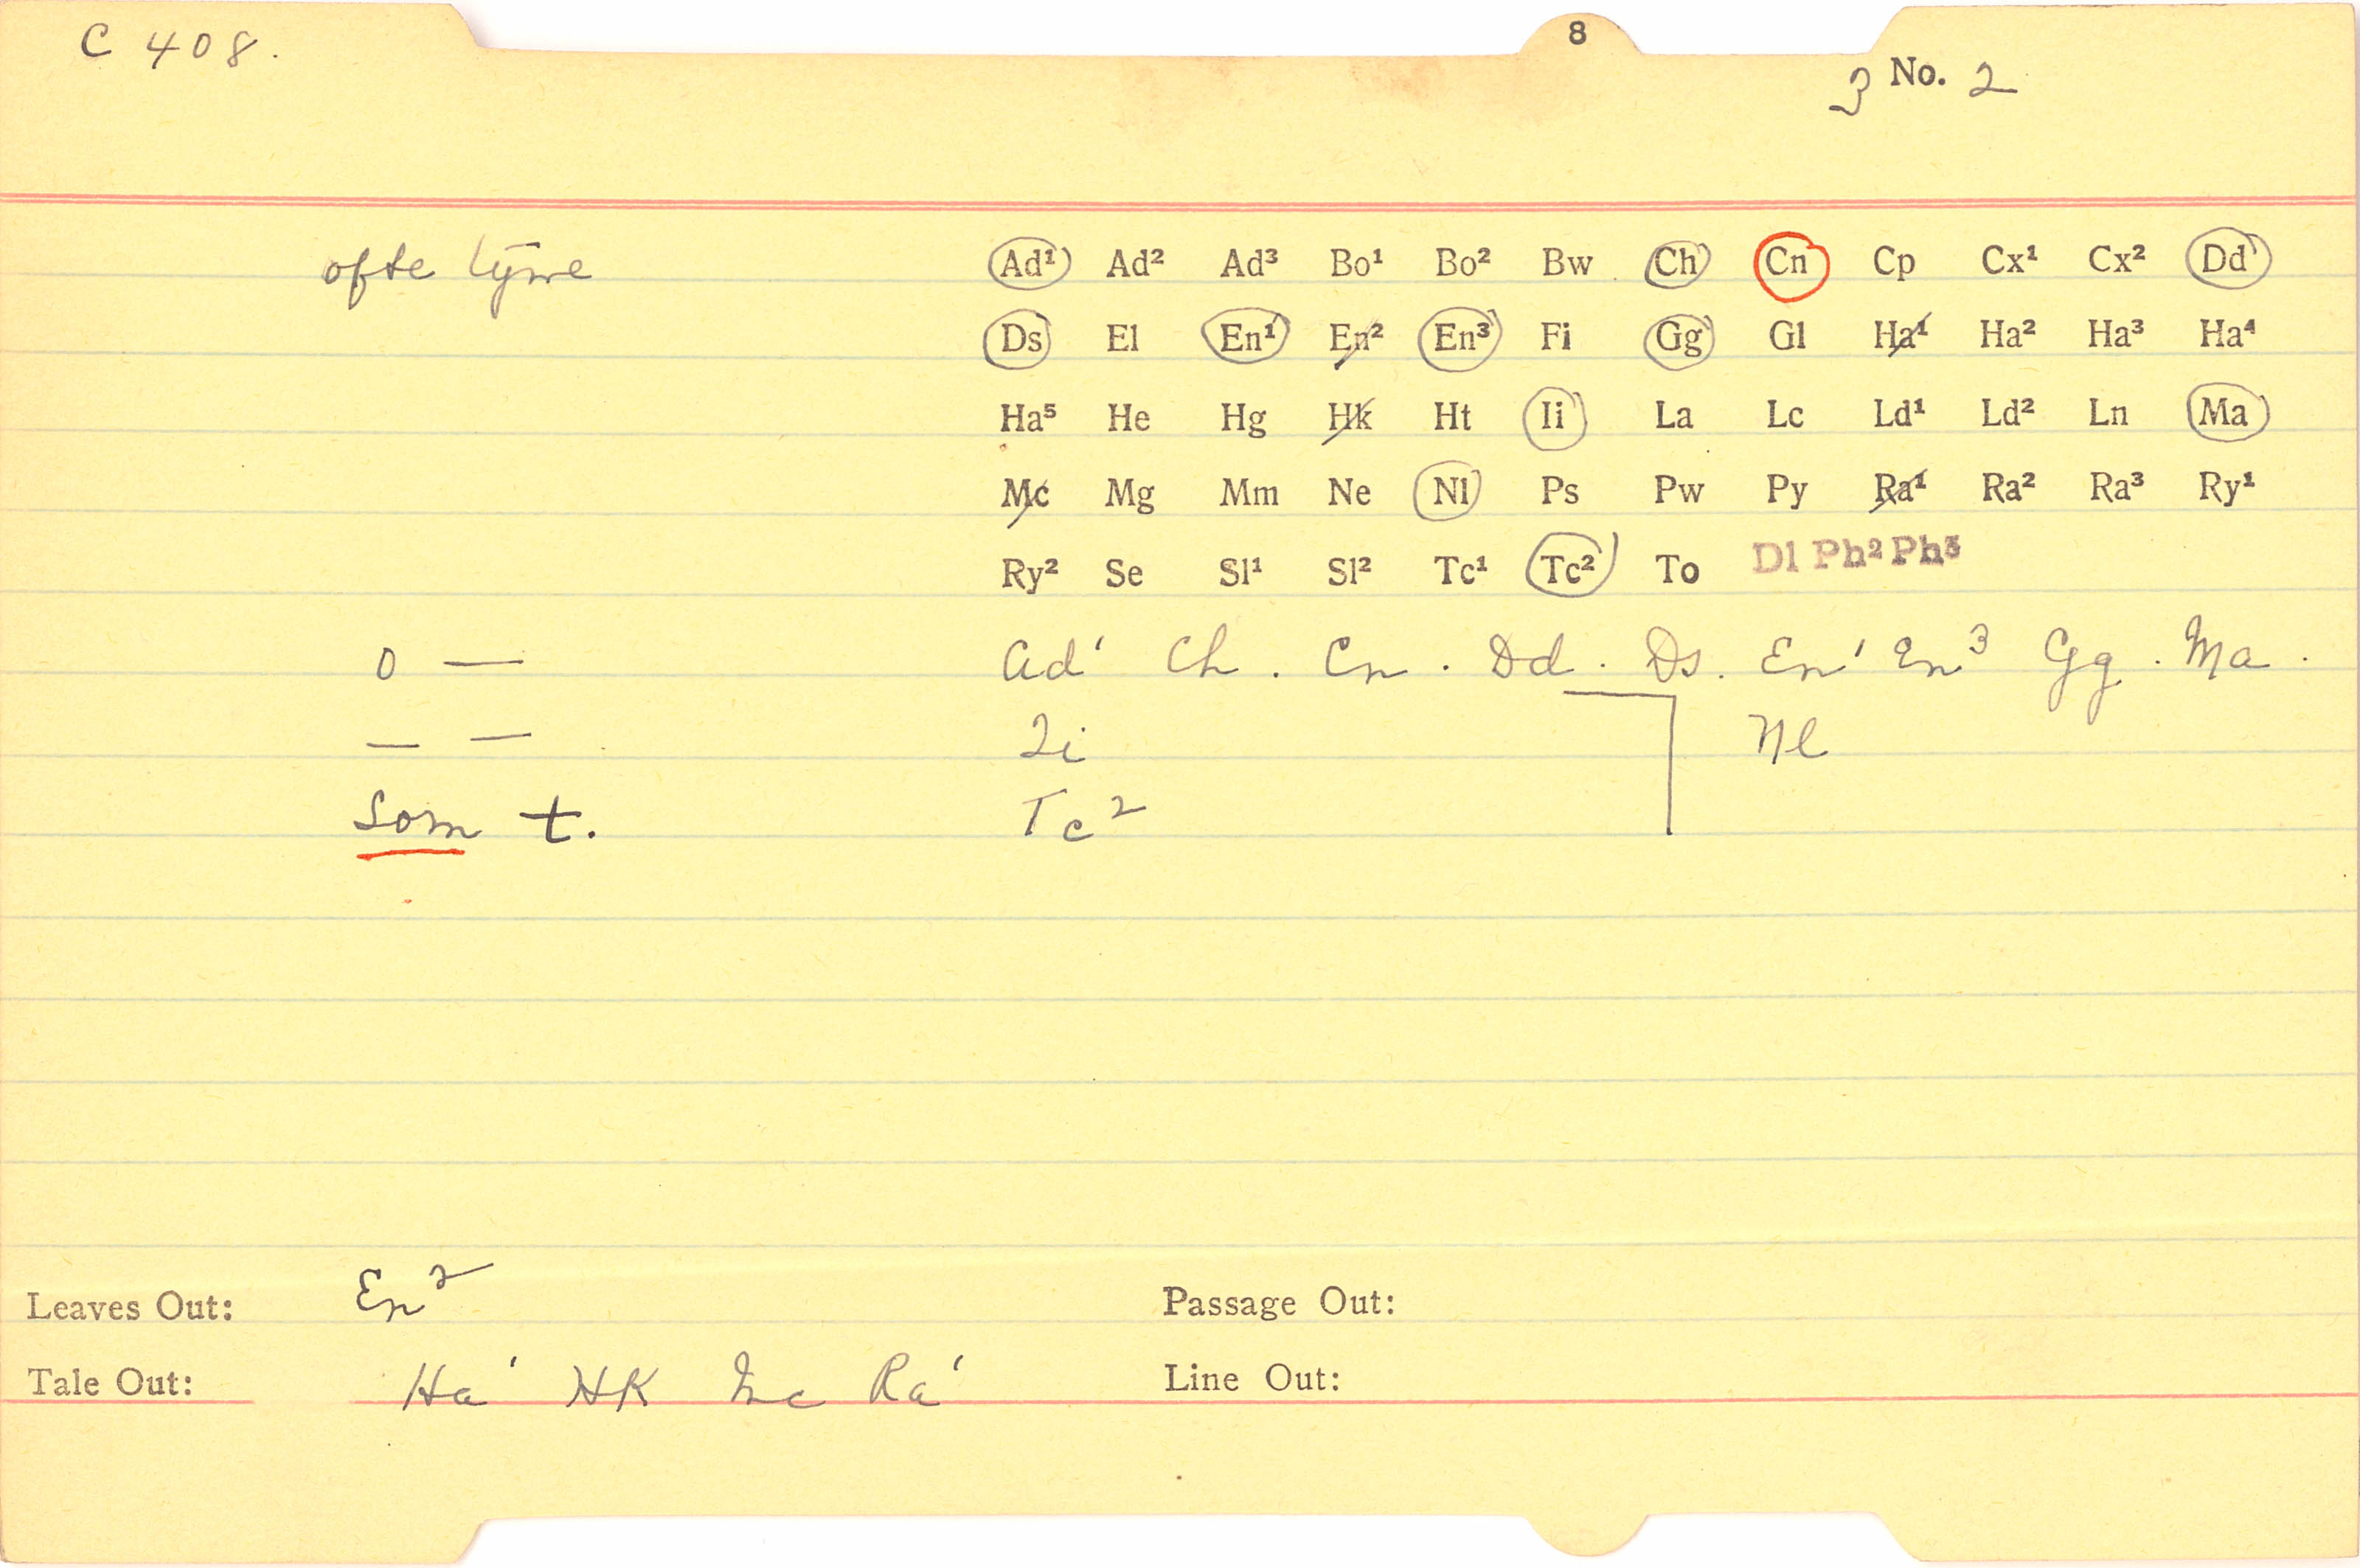 C 408.
8
3 No. 2
ofte tyme Ad¹ Ad² Ad³ Bo¹ Bo² Bw Ch Cn Cp Cx¹ Cx² Dd
Ds El En¹ En² En³ Fi Gg Gl Ha¹ Ha² Ha³ Ha⁴
Ha⁵ He Hg Hk Ht Ii La Lc Ld¹ Ld² Ln Ma
Mc Mg Mm Ne Nl Ps Pw Py Ra¹ Ra² Ra³ Ry¹
Ry² Se Sl¹ Sl² Tc¹ Tc² To Dl Ph² Ph³
o — Ad¹ Ch. Cn. Dd. Ds. En¹ En³ Gg. Ma.
— — Ii Nl
Som t. Tc²
Leaves Out: En² Passage Out:
Tale Out: Ha¹ HK Mc Ra¹ Line Out: